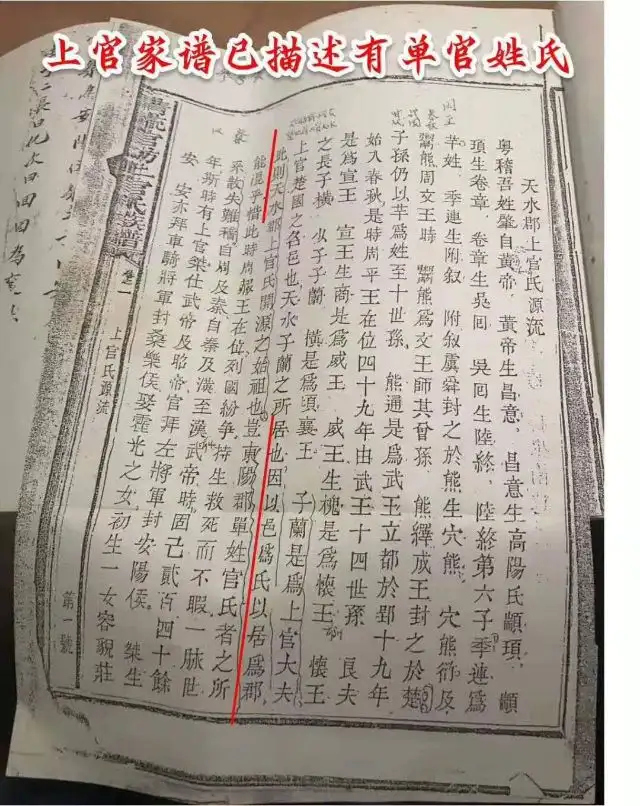 上官家谱已描述有单官姓氏
天水郡上官氏源流
粵稽吾姓肇自黃帝．黃帝生昌意．昌意生高陽氏顓項．顓
項生卷章．卷章生吳囘．吳囘生陸終．陸終第六子季連爲
芈姓．季連生附叙．附叙虞舜封之於熊生穴熊．穴熊衍及
鬻熊周文王時．鬻熊爲文王師其曾孫．熊繹成王封之於楚
子孫仍以芈爲姓至十世孫．熊通是爲武王立都於郢十九年
始入春秋是時周平王在位四十九年由武王十四世孫．良夫
是爲宣王．宣王生商是爲威王．威王生槐是爲懷王．懷王
之長子橫．少子子蘭．橫是爲頃襄王．子蘭是爲上官大夫
上官楚國之名邑也天水子蘭之所居也因以邑爲氏以居爲郡
此則天水郡上官氏開源之始祖也豈東陽郡單姓官氏者之所
能混乎惜此時周赧王在位列國紛争特生救死而不暇一脉世
系散失難稱自周及秦自秦及漢至漢武帝時固己貳百四十餘
年斯時有上官桀仕武帝及昭帝官拜左將軍封安陽侯．桀生
安．安亦拜車騎將軍封桑樂侯娶霍光之女初生一女容貌莊
卷一
上官氏源流
第一號